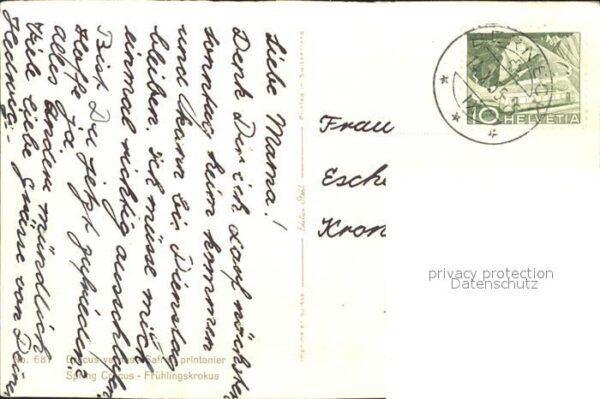 Liebe Mama!
Denk Dir ich darf nächsten
sonntag heim kommen
und kann bis Dienstag
bleiben. ich müsse mich
einmal richtig ausschlafen.
Bist Du jetzt zufrieden?
Hoffe ja.
alles andere mündlich
Viele liebe Grüsse von Deiner
Hedwig.
Frau
Esche
Kron
HELVETIA
10
No. 687 Crocus vernus - Safran printanier
Spring Crocus - Frühlingskrokus
privacy protection
Datenschutz